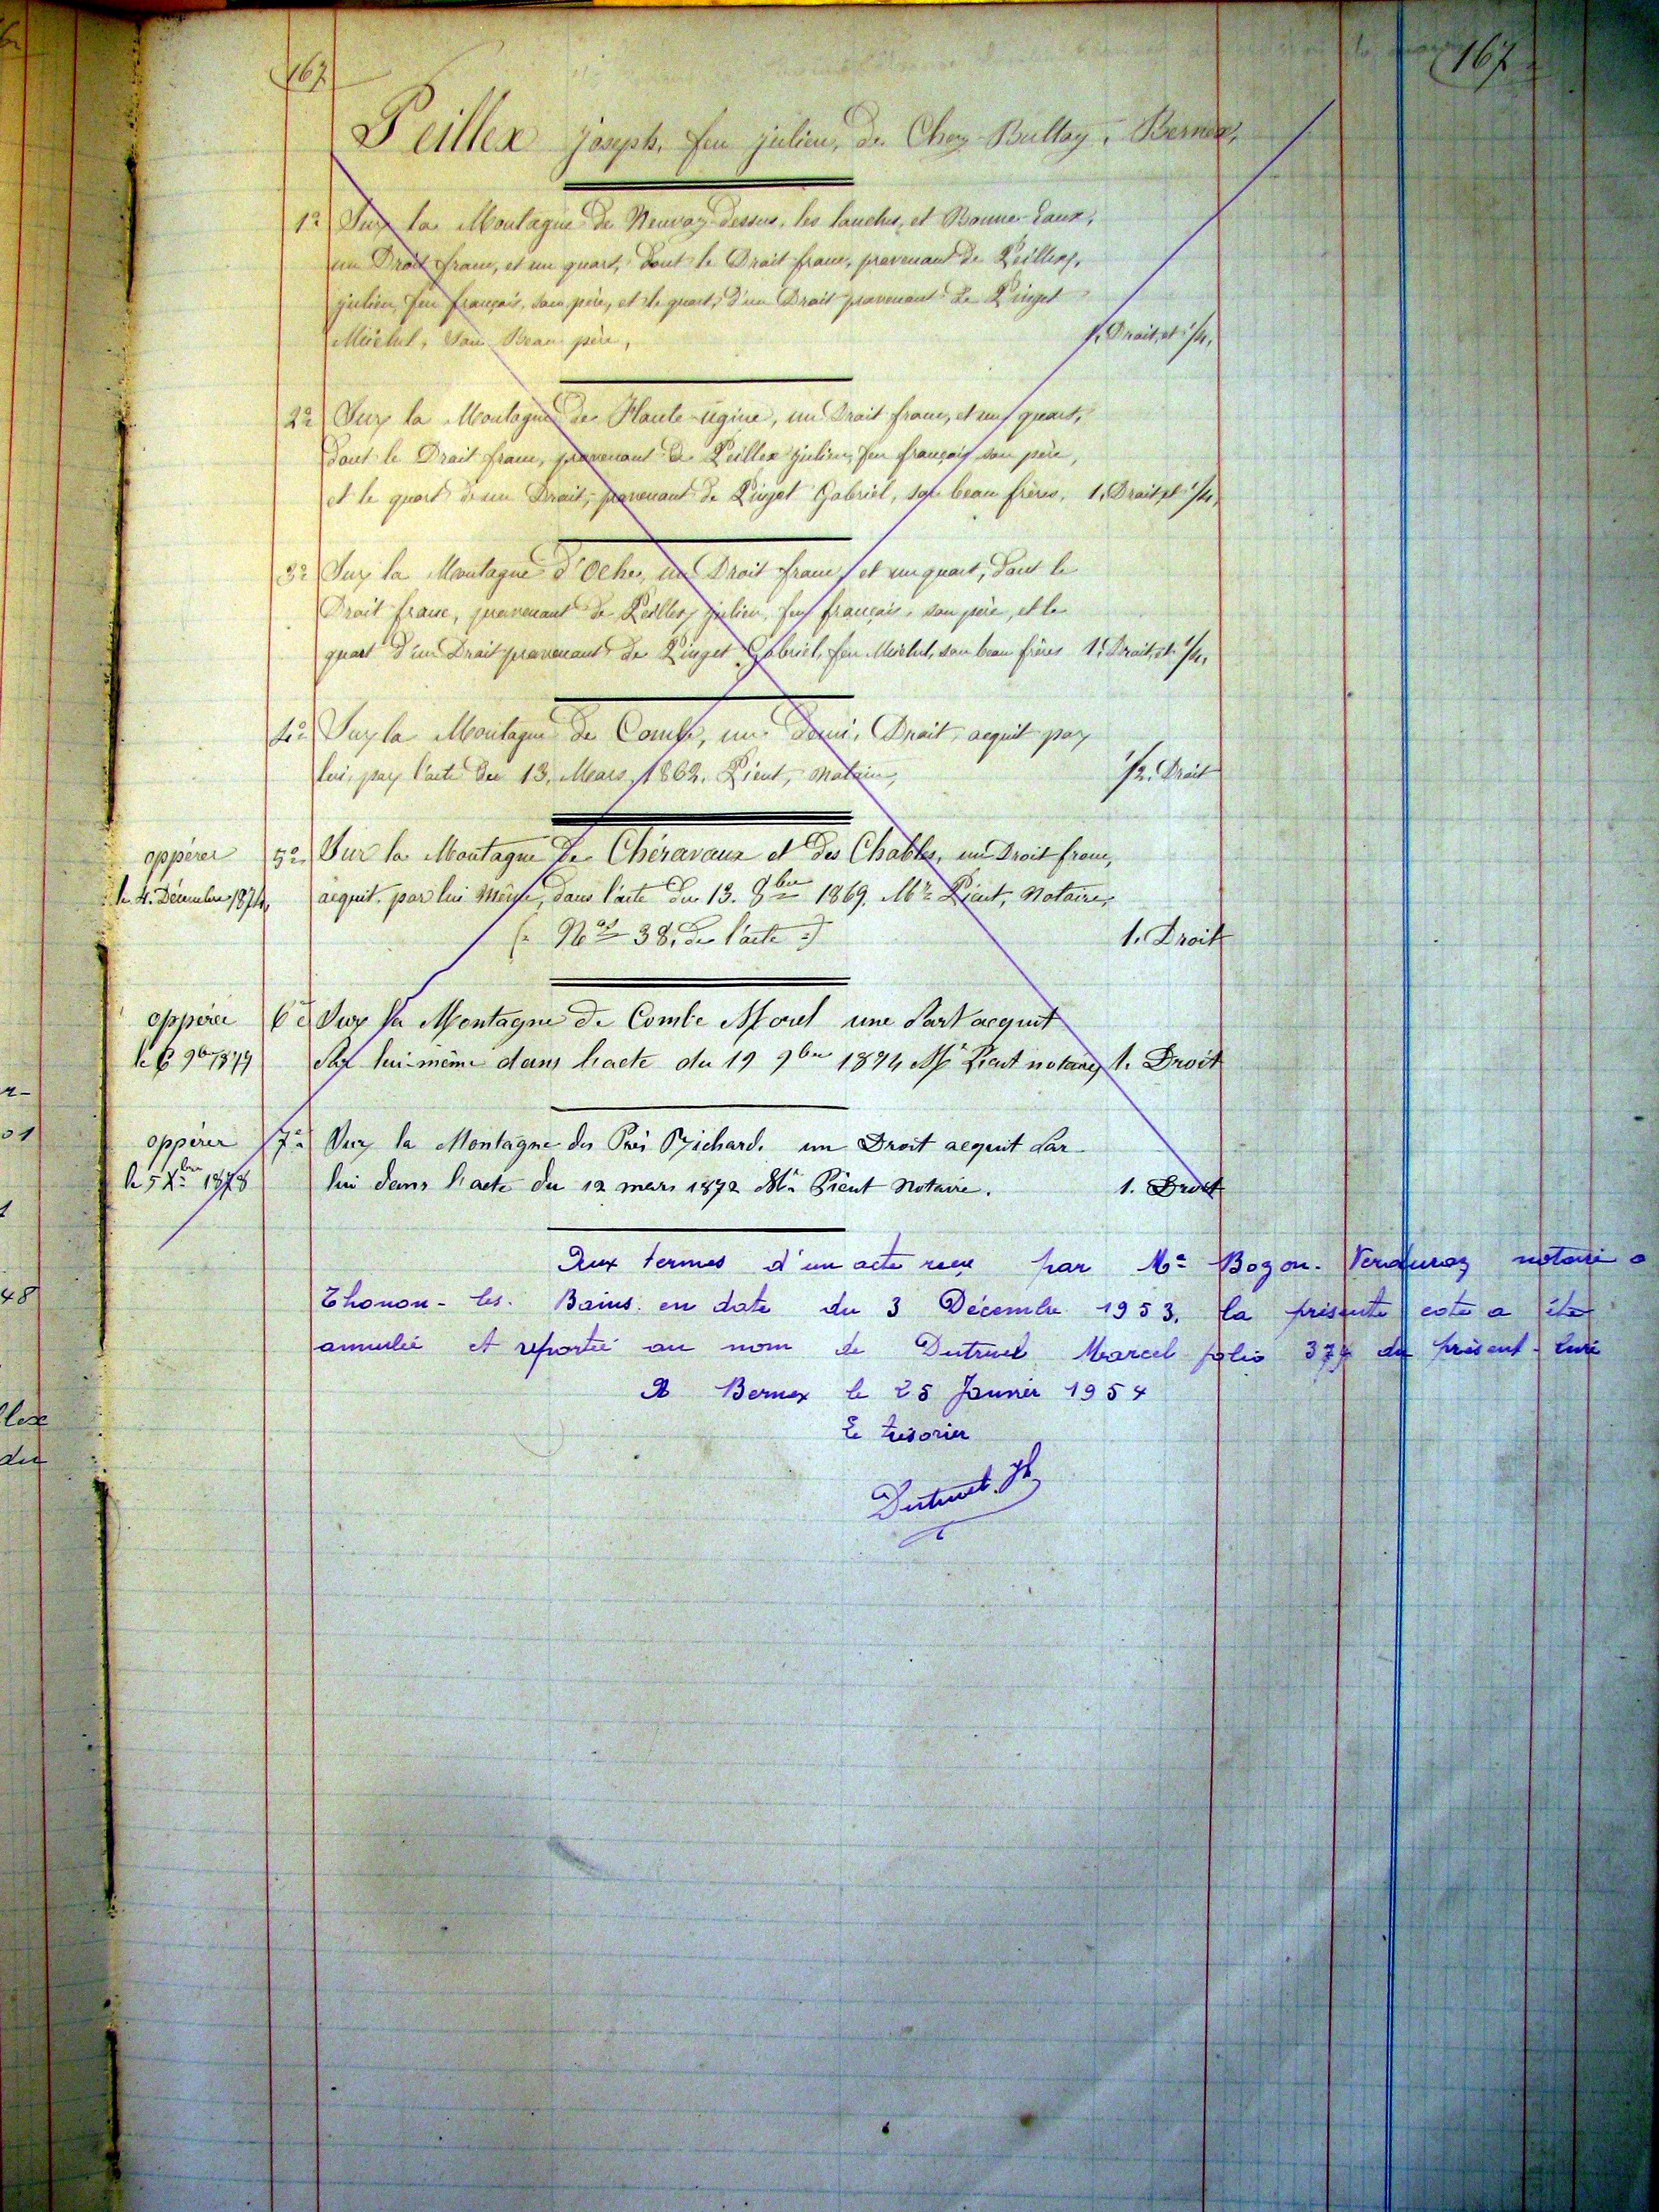 167
167
Peillex joseph, feu julien, de Chez Bullaz, Bernex,
1º Sur la Montagne de Neuvaz dessus, les lanches, et Bonne-Eaux,
un Droit franc, et un quart, dont le Droit franc, provenant de Peillex,
julien, feu français, son père, et le quart, d'un Droit provenant de Pinget
Michel, son Beau père, 1. Droit, et 1/4,
2º Sur la Montagne de Haute-ugine, un Droit franc, et un quart,
dont le Droit franc, provenant de Peillex julien, feu français son père,
et le quart d'un Droit, provenant de Pinget Gabriel, son beau frères, 1. Droit, et 1/4,
3º Sur la Montagne d'Oche, un Droit franc, et un quart, dont le
Droit franc, provenant de Peillex, julien, feu français, son père, et le
quart d'un Droit provenant de Pinget Gabriel, feu Michel, son beau frères 1. Droit, et 1/4,
4º Sur la Montagne de Combe, un Demi, Droit, acquit par
lui, par l'acte du 13, Mars, 1862, Pieut, notaire, 1/2. Droit
oppérer 5º Sur la Montagne de Chéravaux et des Chables, un Droit franc,
le 4. Décembre 1874, acquit. par lui même, dans l'acte du 13. 8bre 1869, Mre Pieut, Notaire,
(: Nos 38, de l'acte :) 1. Droit
oppérer 6º Sur la Montagne de Combe Morel une Part acquit
le 6 9bre 1879 Par lui-même dans l'acte du 19 9bre 1874 Me Pieut notaire, 1. Droit
oppérer 7º Sur la Montagne des Prés Richard, un Droit acquit Par
le 5 Xbre 1878 lui dans l'acte du 12 mars 1872 Me Pieut Notaire. 1. Droit
Aux termes d'un acte reçu par Me Bogon. Verduraz notaire a
Thonon-les-Bains en date du 3 Décembre 1953, la présente cote a été
annulée et reportée au nom de Dutruel Marcel folio 374 du présent livre
A Bernex le 25 Janvier 1954
Le trésorier
Dutruel. Jh